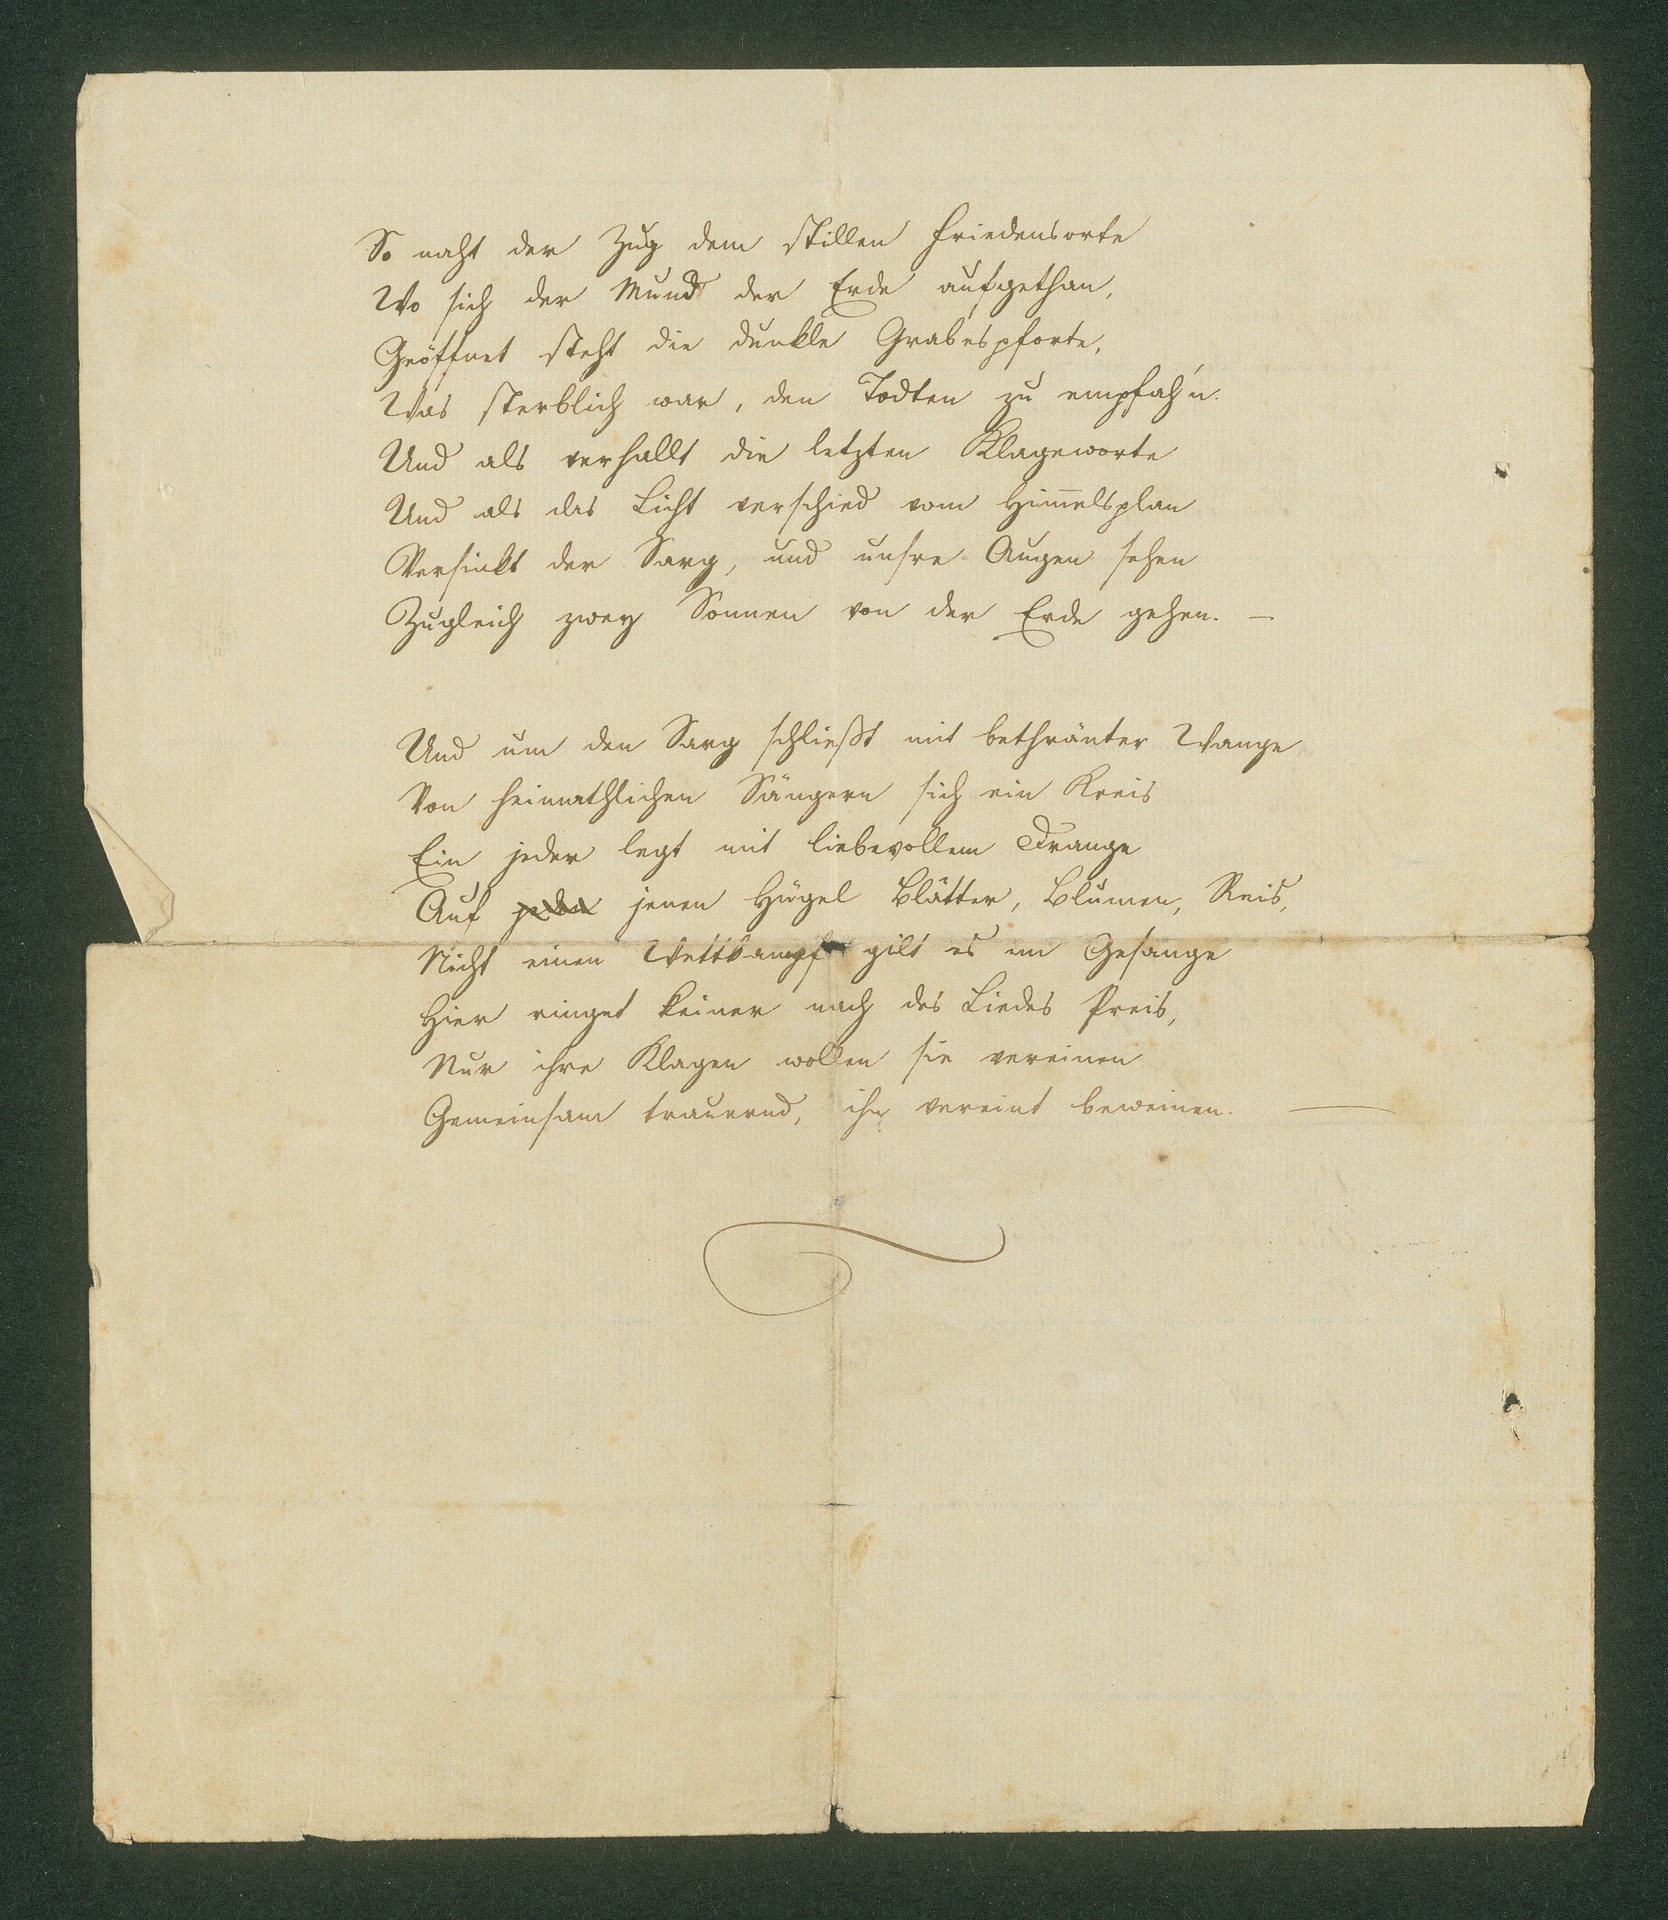 So naht der Zug dem stillen Friedensorte
Wo sich der Mund der Erde aufgethan,
Geöffnet steht die dunkle Grabespforte,
Was sterblich war, den Todten zu empfah'n.
Und als verhallt die letzten Klageworte
Und als das Licht verschied vom Him̅elsplan
Versinkt der Sarg, und unsre Augen sehen
Zugleich zwey Sonnen von der Erde gehen. —
Und um den Sarg schließt mit bethränter Wange
Von heimathlichen Sängern sich ein Kreis
Ein jeder legt mit liebevollem Drange
Auf jeden jenen Hügel Blätter, Blumen, Reis,
Nicht einen Wettkampf gilt es im Gesange
Hier ringet keiner nach des Liedes Preis,
Nur ihre Klagen wollen sie vereinen
Gemeinsam trauernd, ihn vereint beweinen. —